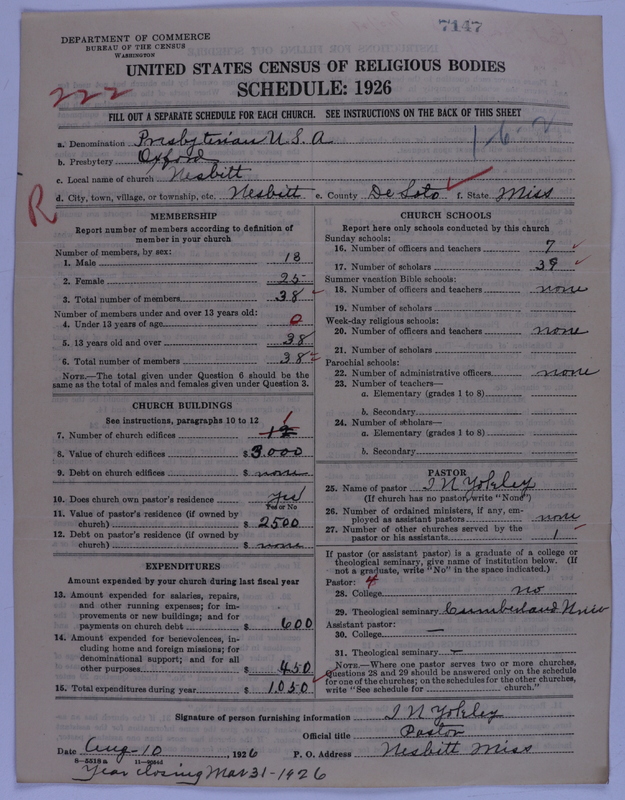 7147
DEPARTMENT OF COMMERCE
BUREAU OF THE CENSUS
WASHINGTON
UNITED STATES CENSUS OF RELIGIOUS BODIES
SCHEDULE: 1926
222
FILL OUT A SEPARATE SCHEDULE FOR EACH CHURCH. SEE INSTRUCTIONS ON THE BACK OF THIS SHEET
a. Denomination Presbyterian U.S.A.
b. Presbytery Oxford
c. Local name of church Nesbitt
d. City, town, village, or township, etc. Nesbitt e. County De Soto f. State Miss
R
MEMBERSHIP
Report number of members according to definition of
member in your church
Number of members, by sex:
1. Male 13
2. Female 25
3. Total number of members 38
Number of members under and over 13 years old:
4. Under 13 years of age 0
5. 13 years old and over 38
6. Total number of members 38
NOTE.—The total given under Question 6 should be
the same as the total of males and females given under Question 3.
CHURCH BUILDINGS
See instructions, paragraphs 10 to 12
7. Number of church edifices 1
8. Value of church edifices $ 3000
9. Debt on church edifices $ none
10. Does church own pastor's residence yes
Yes or No
11. Value of pastor's residence (if owned by
church) $ 2500
12. Debt on pastor's residence (if owned by
church) $ none
EXPENDITURES
Amount expended by your church during last fiscal year
13. Amount expended for salaries, repairs,
and other running expenses; for im-
provements or new buildings; and for
payments on church debt $ 600
14. Amount expended for benevolences, in-
cluding home and foreign missions; for
denominational support; and for all
other purposes $ 450
15. Total expenditures during year $ 1050
CHURCH SCHOOLS
Report here only schools conducted by this church
Sunday schools:
16. Number of officers and teachers 7
17. Number of scholars 39
Summer vacation Bible schools:
18. Number of officers and teachers none
19. Number of scholars
Week-day religious schools:
20. Number of officers and teachers none
21. Number of scholars
Parochial schools:
22. Number of administrative officers none
23. Number of teachers—
a. Elementary (grades 1 to 8)
b. Secondary
24. Number of scholars—
a. Elementary (grades 1 to 8)
b. Secondary
PASTOR
25. Name of pastor I N Yokley
(If church has no pastor, write "None")
26. Number of ordained ministers, if any, em-
ployed as assistant pastors none
27. Number of other churches served by the
pastor or his assistants 1
If pastor (or assistant pastor) is a graduate of a college or
theological seminary, give name of institution below. (If
not a graduate, write "No" in the space indicated.)
Pastor: 4
28. College no
29. Theological seminary Cumberland Univ
Assistant pastor:
30. College —
31. Theological seminary —
NOTE.—Where one pastor serves two or more churches,
Questions 28 and 29 should be answered only on the schedule
for one of the churches; on the schedules for the other churches,
write "See schedule for church."
Signature of person furnishing information I N Yokley
Official title Pastor
Date Aug-10, 1926 P. O. Address Nesbitt Miss
Year closing Mar 31-1926